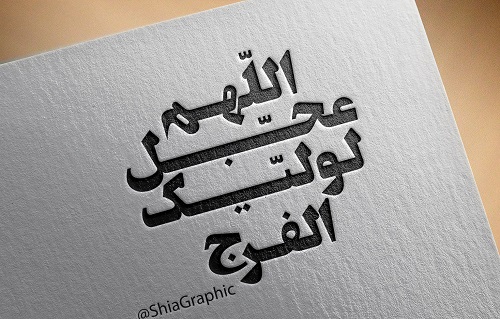 اللّهم
عجّل
لولیّک
الفرج
@ShiaGraphic